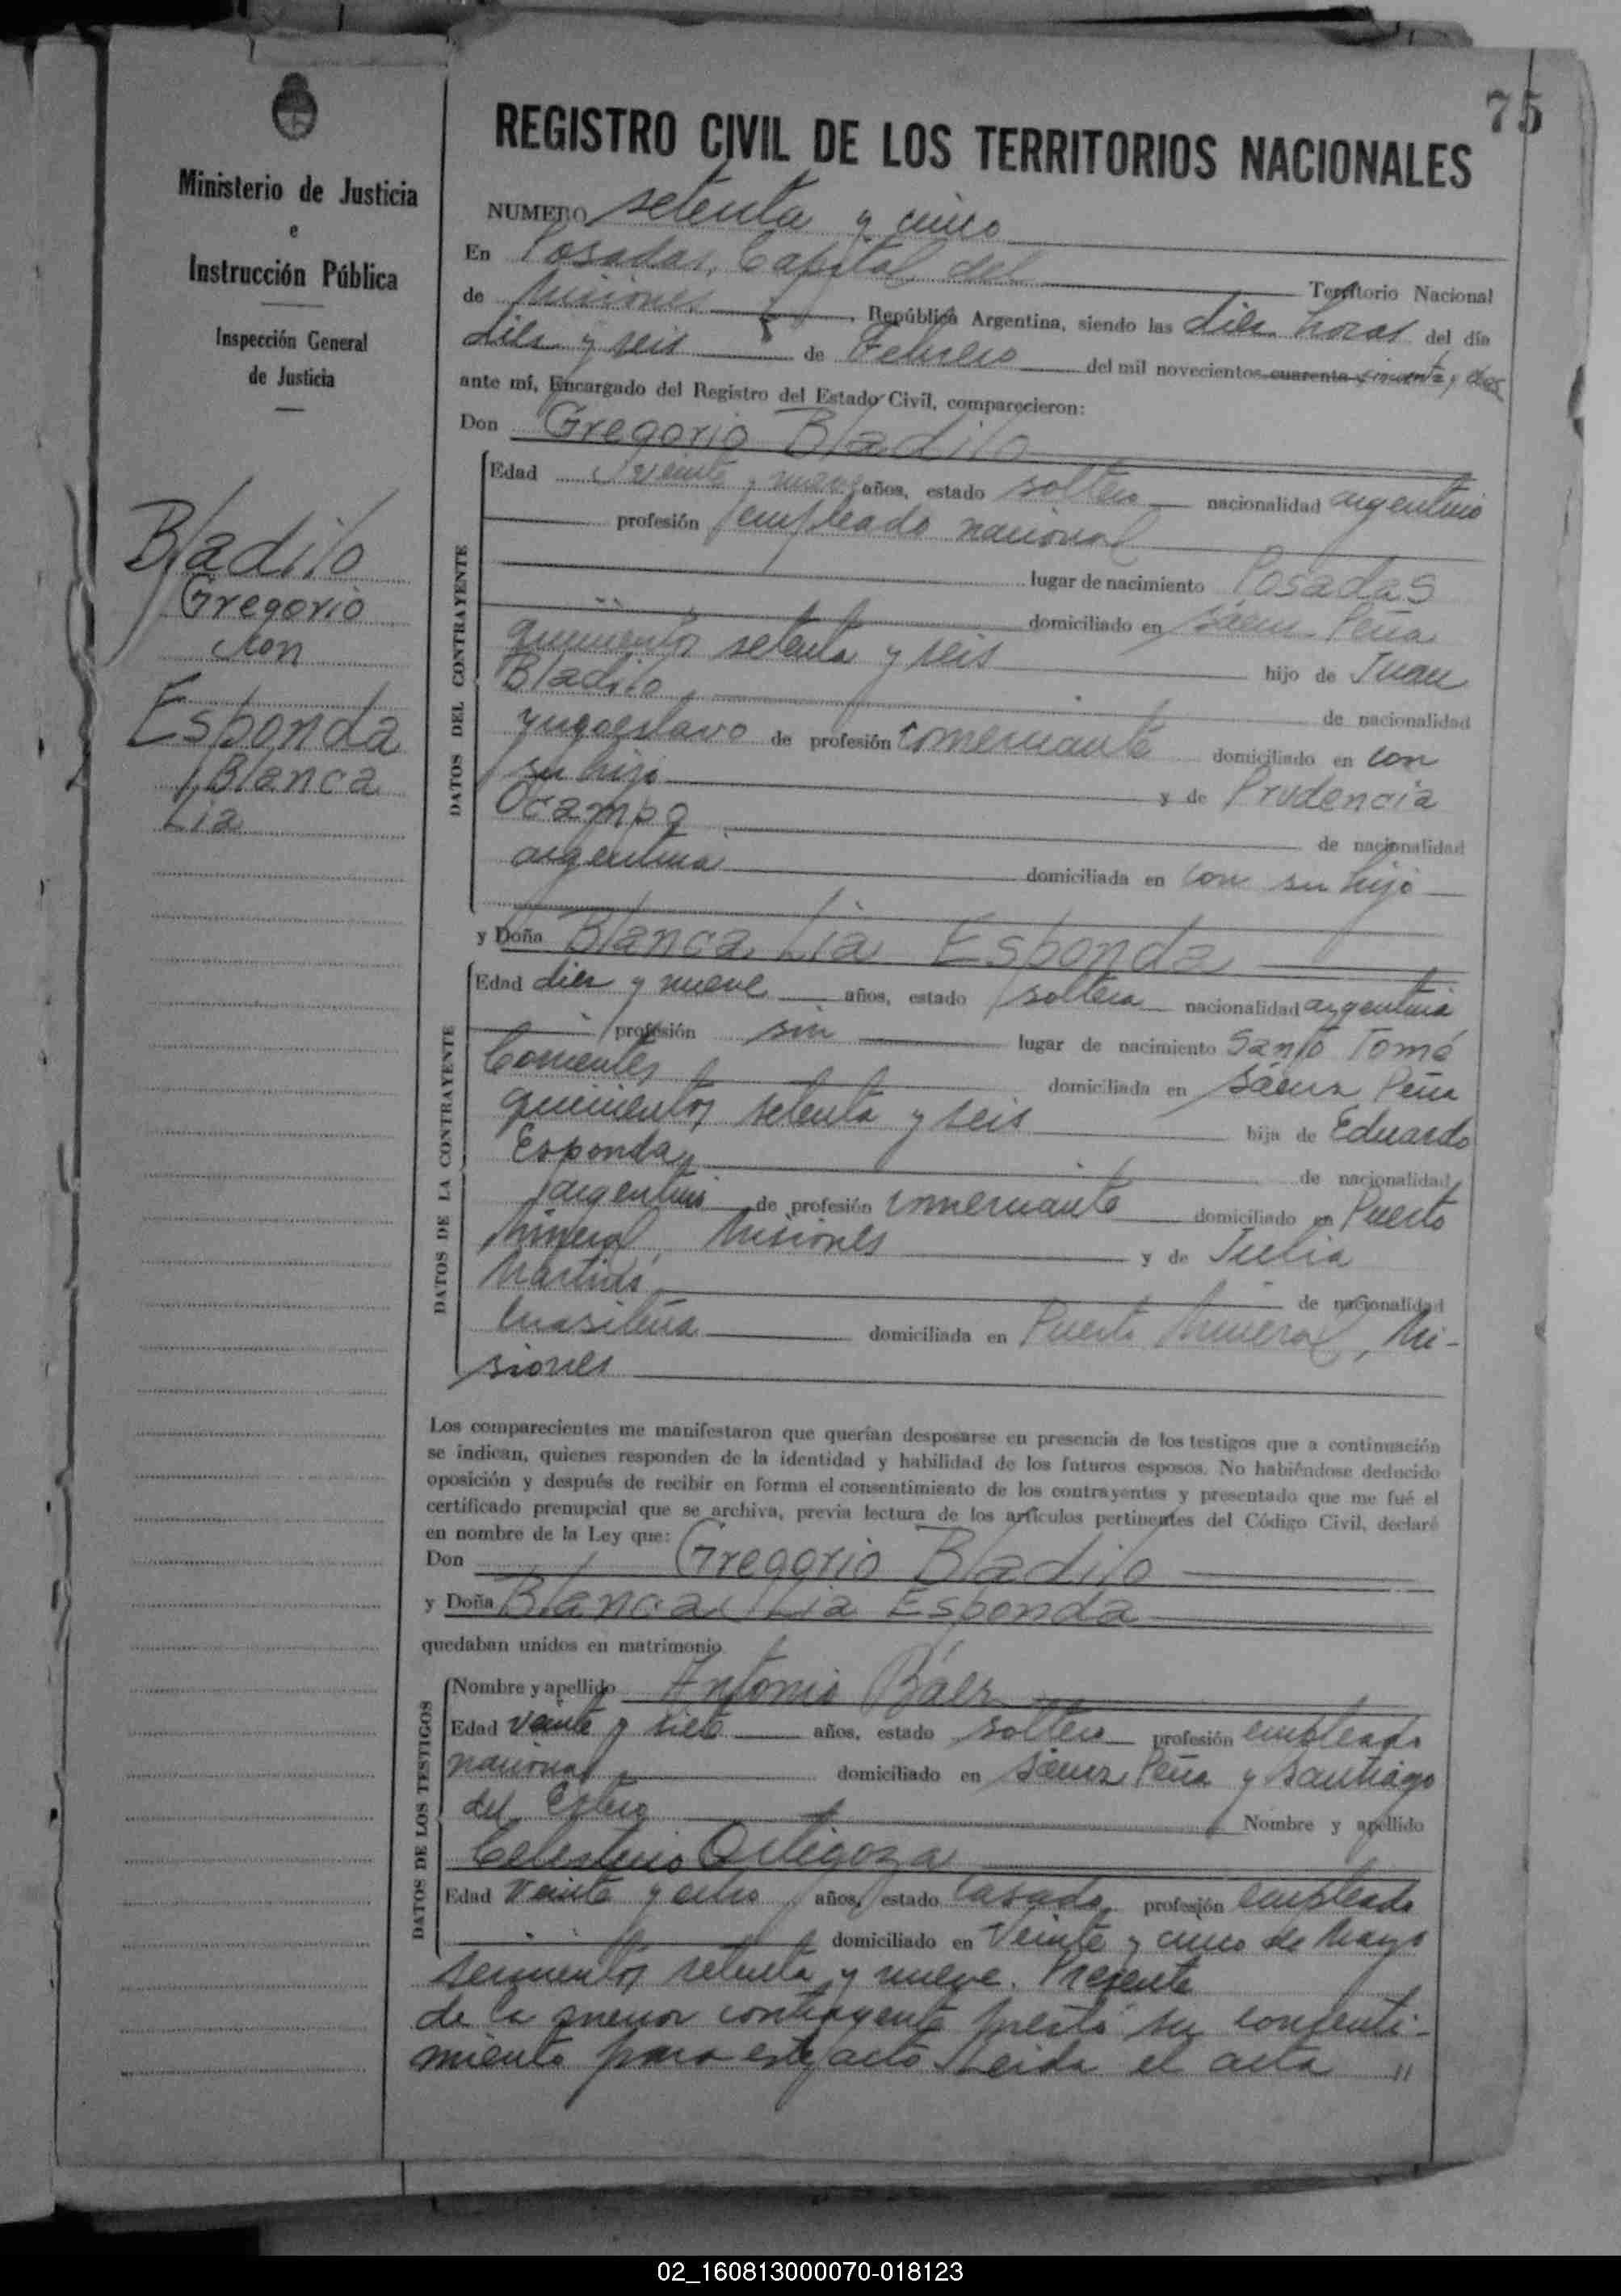 75
Ministerio de Justicia
e
Instrucción Pública
Inspección General
de Justicia
Bladilo
Gregorio
con
Esponda
Blanca
Lia
REGISTRO CIVIL DE LOS TERRITORIOS NACIONALES
NUMERO setenta y cinco
En Posadas, Capital del Territorio Nacional
de Misiones, República Argentina, siendo las diez horas del día
diez y seis de Febrero del mil novecientos cuarenta cincuenta y dos
ante mí, Encargado del Registro del Estado Civil, comparecieron:
Don Gregorio Bladilo
DATOS DEL CONTRAYENTE
Edad veinte y nueve años, estado soltero nacionalidad argentino
profesión empleado nacional
lugar de nacimiento Posadas
domiciliado en Sáenz Peña
quinientos setenta y seis hijo de Juan
Bladilo, de nacionalidad
yugoeslavo de profesión comerciante domiciliado en con
su hijo y de Prudencia
Ocampo de nacionalidad
argentina domiciliada en con su hijo
y Doña Blanca Lia Esponda
DATOS DE LA CONTRAYENTE
Edad diez y nueve años, estado soltera nacionalidad argentina
profesión sin lugar de nacimiento Santo Tomé
Corrientes domiciliada en Sáenz Peña
quinientos setenta y seis hija de Eduardo
Esponda, de nacionalidad
argentino de profesión comerciante domiciliado en Puerto
Mineral, Misiones y de Julia
de nacionalidad
brasileña domiciliada en Puerto Mineral, Mi-
siones
Los comparecientes me manifestaron que querían desposarse en presencia de los testigos que a continuación
se indican, quienes responden de la identidad y habilidad de los futuros esposos. No habiéndose deducido
oposición y después de recibir en forma el consentimiento de los contrayentes y presentado que me fué el
certificado prenupcial que se archiva, previa lectura de los artículos pertinentes del Código Civil, declaré
en nombre de la Ley que:
Don Gregorio Bladilo
y Doña Blanca Lia Esponda
quedaban unidos en matrimonio
DATOS DE LOS TESTIGOS
Nombre y apellido Antonio Báez
Edad veinte y siete años, estado soltero profesión empleado
nacional domiciliado en Sáenz Peña y Santiago
del Estero Nombre y apellido
Celestino Ortigoza
Edad veinte y ocho años, estado casado, profesión empleado
domiciliado en Veinte y cinco de Mayo
seiscientos setenta y nueve. Presente
de la menor contrayente prestó su consenti-
miento para este acto. Leida el acta "
02_160813000070-018123